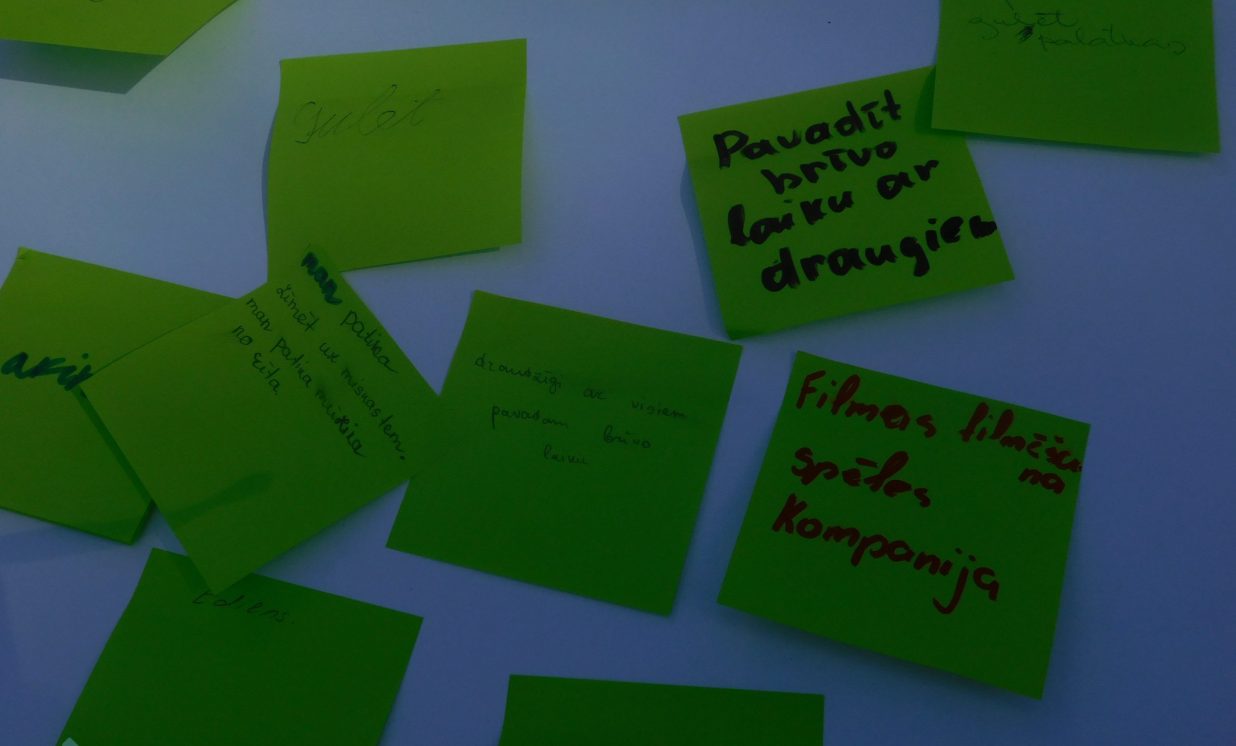 gulēt
palātkas
gulēt
Pavadīt
brīvo
laiku ar
draugiem
man patika
zīmēt uz
man patika mūzika
no rīta
draudzīgi ar visiem
pavadam brīvo
laiku
Filmas filmēšana
spēles
Kompanija
Ēdiens.